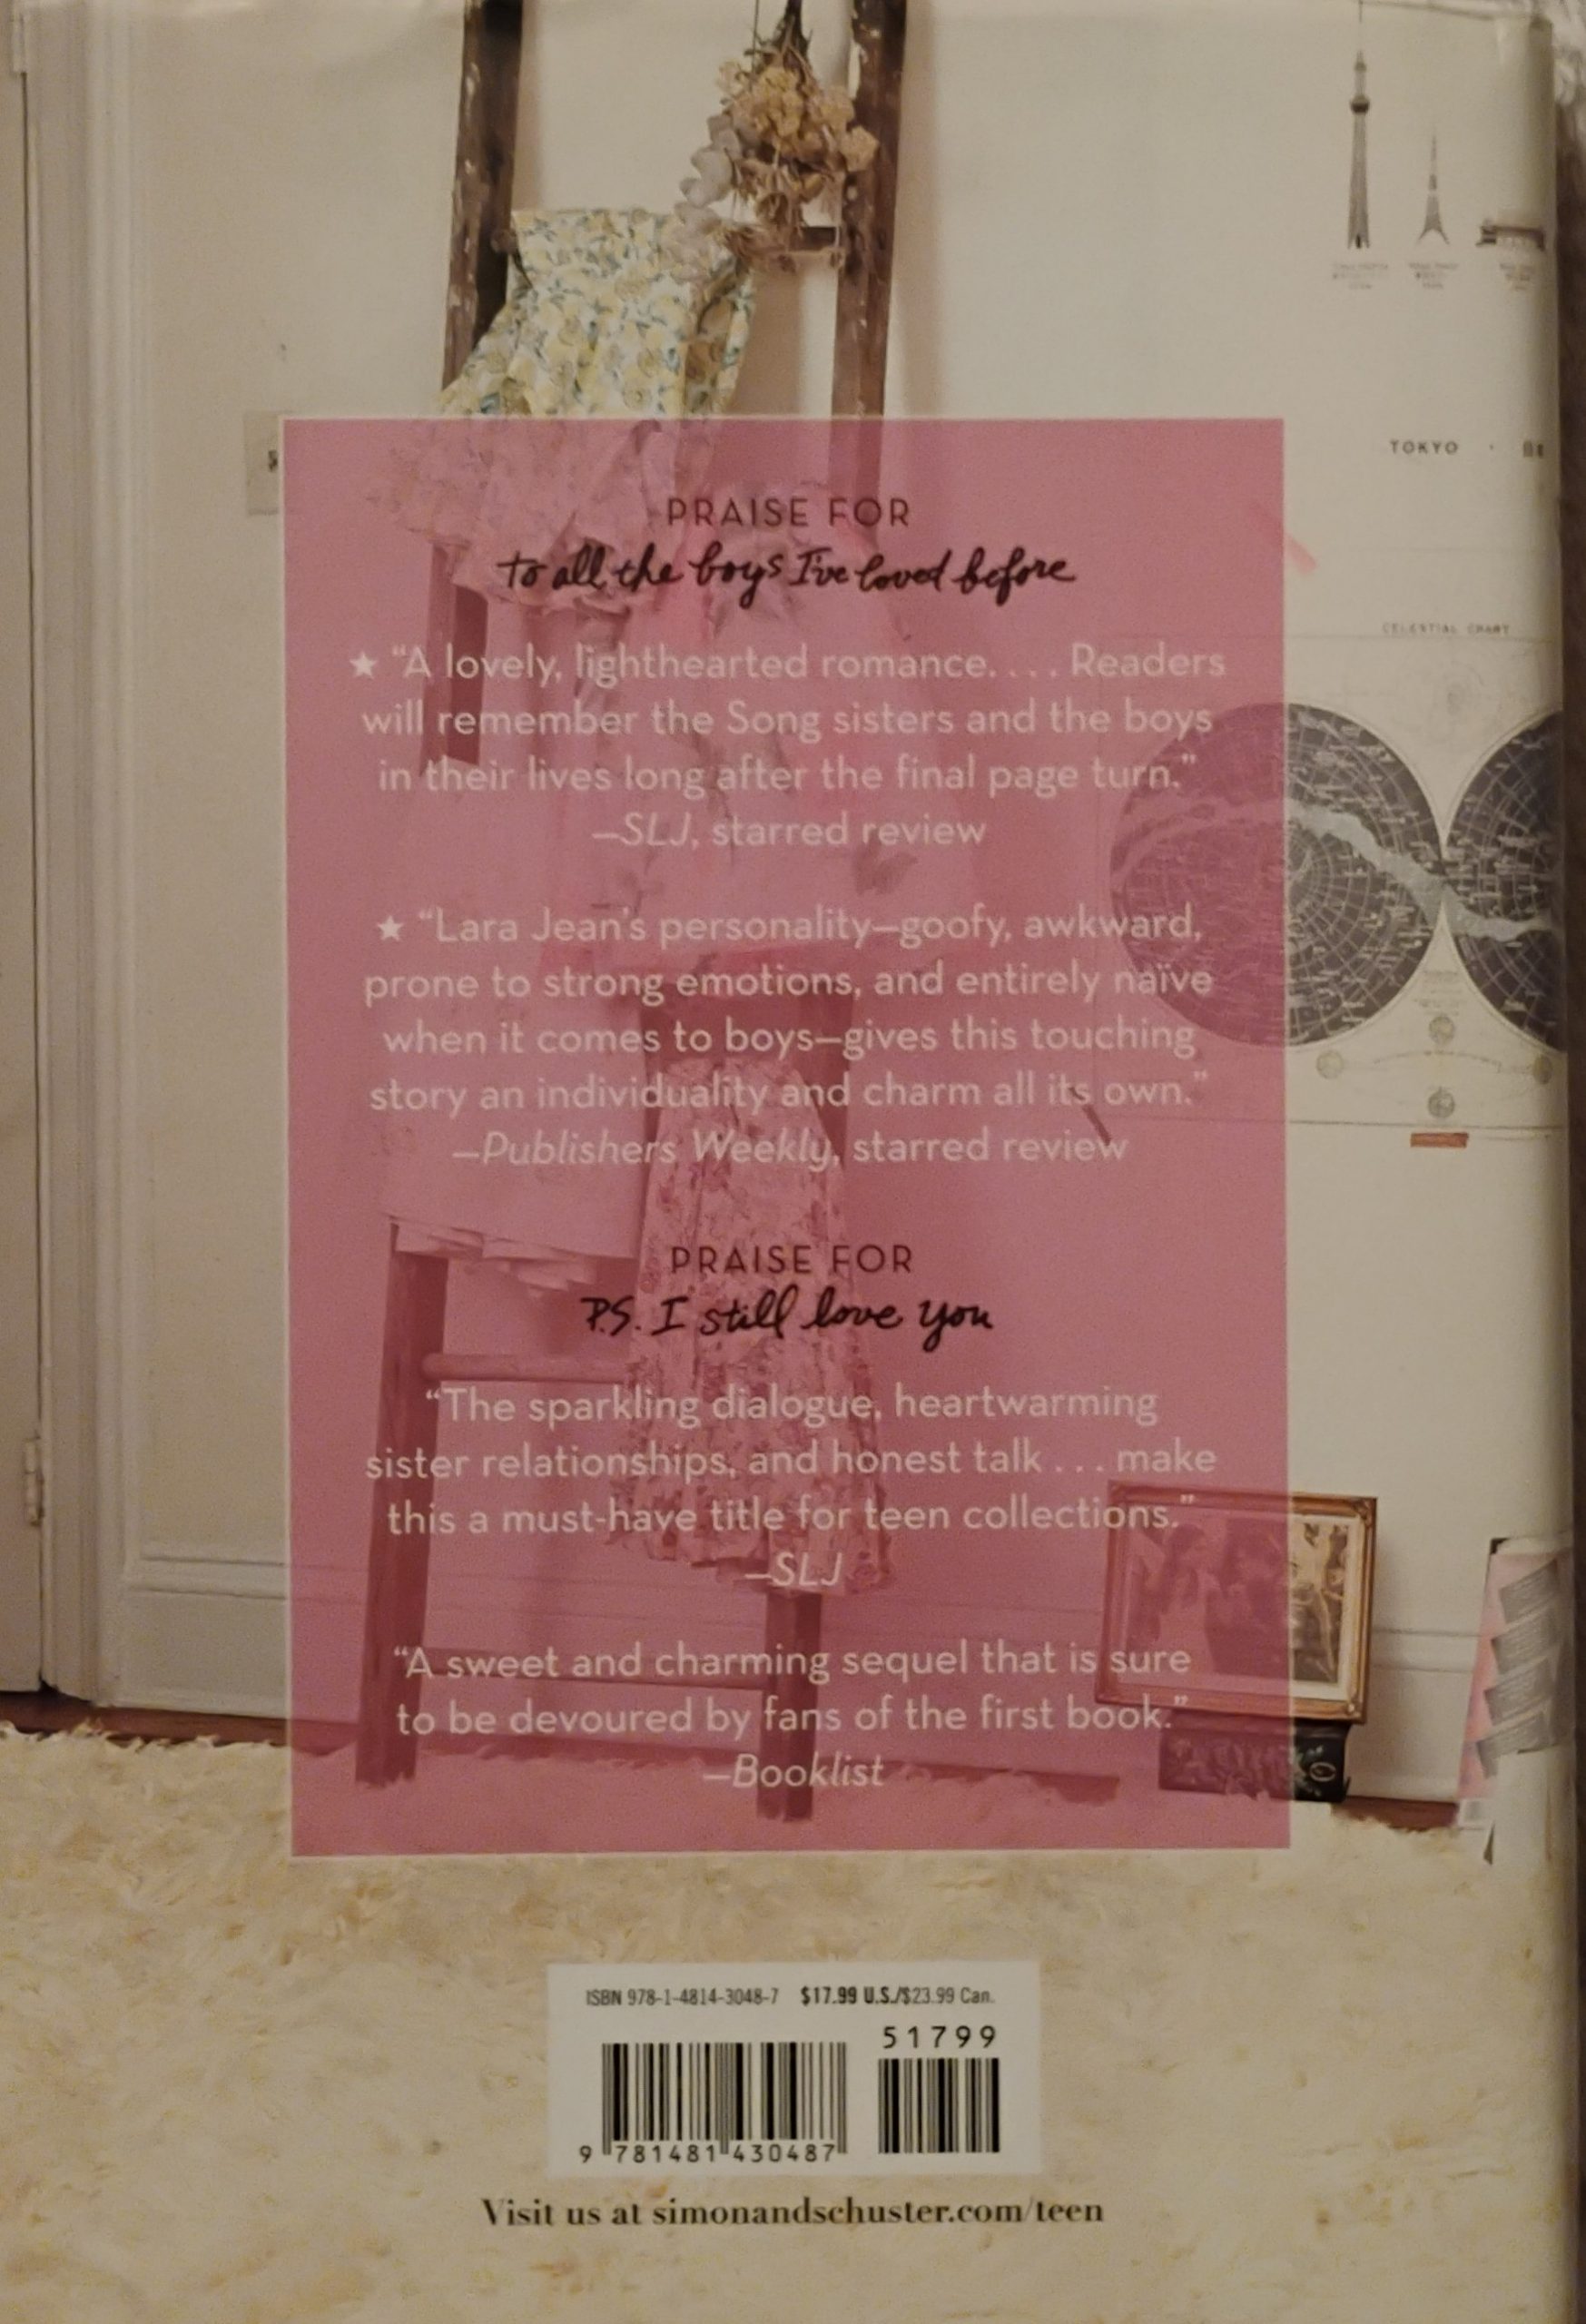 TOKYO
CELESTIAL CHART
PRAISE FOR
to all the boys I've loved before
★ “A lovely, lighthearted romance. . . . Readers
will remember the Song sisters and the boys
in their lives long after the final page turn.”
—SLJ, starred review
★ “Lara Jean’s personality—goofy, awkward,
prone to strong emotions, and entirely naïve
when it comes to boys—gives this touching
story an individuality and charm all its own.”
—Publishers Weekly, starred review
PRAISE FOR
P.S. I still love you
“The sparkling dialogue, heartwarming
sister relationships, and honest talk . . . make
this a must-have title for teen collections.”
—SLJ
“A sweet and charming sequel that is sure
to be devoured by fans of the first book.”
—Booklist
ISBN 978-1-4814-3048-7 $17.99 U.S./$23.99 Can.
51799
9 781481 430487
Visit us at simonandschuster.com/teen